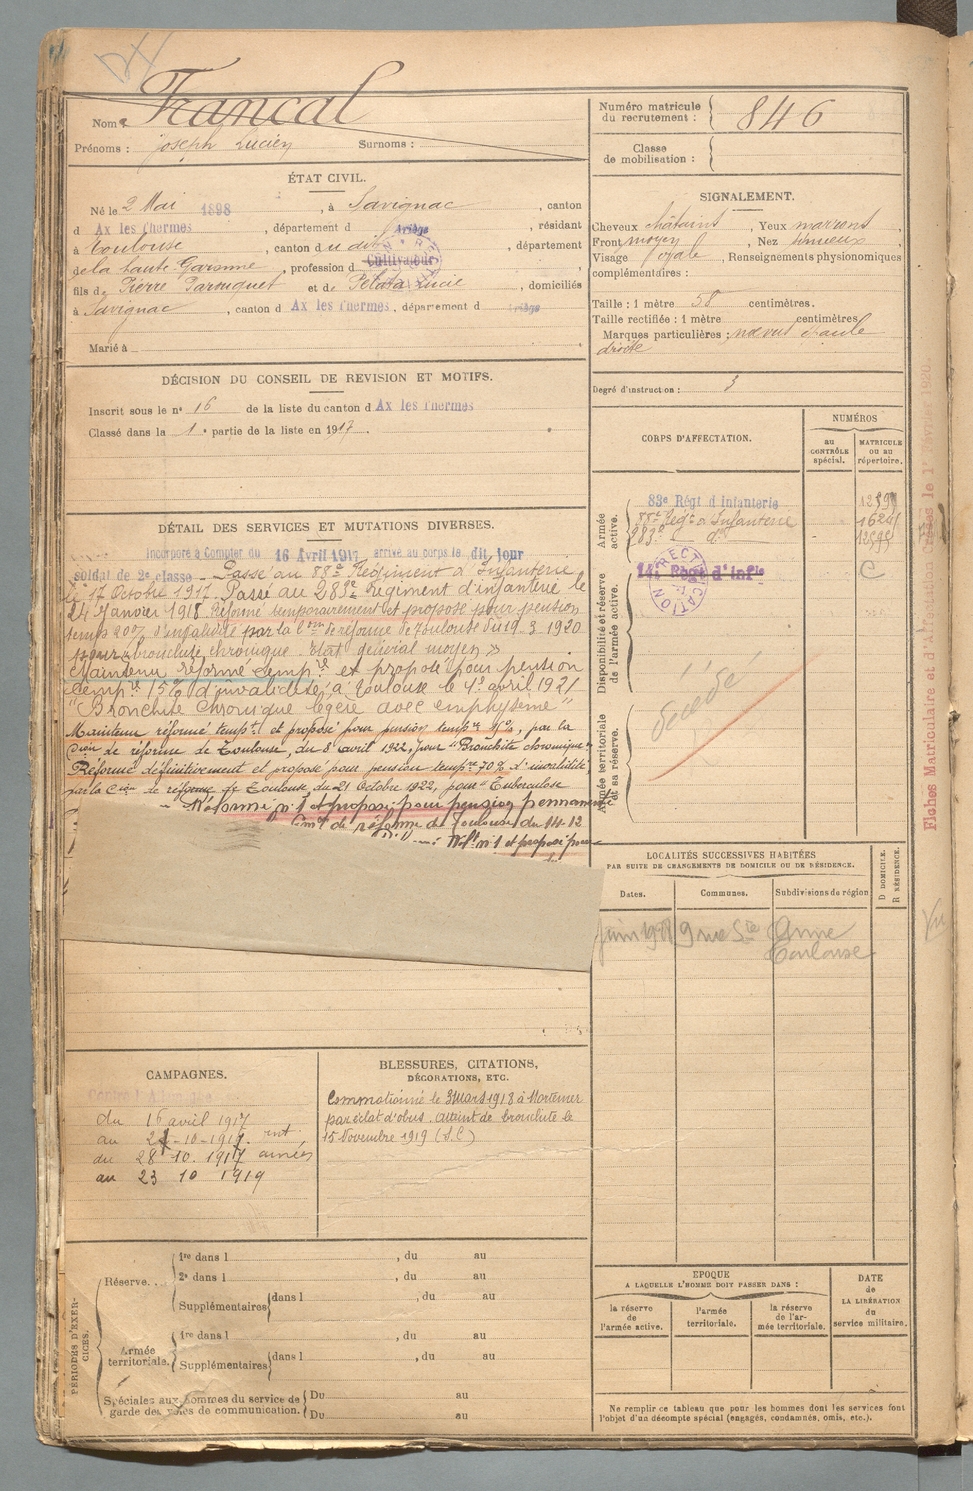 Francal
Nom :
Prénoms : Joseph Lucien Surnoms :
Numéro matricule du recrutement : 846
Classe de mobilisation :
ÉTAT CIVIL.
Né le 2 Mai 1898, à Savignac, canton
d Ax les Thermes, département d Ariège, résidant
à Toulouse, canton du dit, département
de la haute Garonne, profession d Cultivateur
fils de Pierre et de Lucie, domiciliés
à Savignac, canton d Ax les Thermes, département d Ariège
Marié à
SIGNALEMENT.
Cheveux châtains, Yeux marrons,
Front moyen, Nez sinueux
Visage ovale, Renseignements physionomiques
complémentaires :
Taille : 1 mètre 58 centimètres.
Taille rectifiée : 1 mètre centimètres
Marques particulières : nævus épaule
droite
Degré d'instruction : 3
DÉCISION DU CONSEIL DE REVISION ET MOTIFS.
Inscrit sous le n° 16 de la liste du canton d Ax les Thermes
Classé dans la 1e partie de la liste en 1917.
CORPS D'AFFECTATION.
NUMÉROS
au CONTRÔLE spécial.
MATRICULE OU AU répertoire.
Armée active.
83e Régt d'Infanterie
88e Regt d'Infanterie
283e d°
Disponibilité et réserve de l'armée active.
14e Régt d'Infie
RECTIFICATION
C
Armée territoriale et sa réserve.
décédé
DÉTAIL DES SERVICES ET MUTATIONS DIVERSES.
Incorporé à Compter du 16 Avril 1917 arrivé au corps le dit jour
soldat de 2e classe. Passé au 88e Régiment d'Infanterie
le 17 Octobre 1917. Passé au 283e Régiment d'infanterie le
24 Janvier 1918. Réformé temporairement et proposé pour pension
temp 20% d'invalidité par la Com de réforme de Toulouse du 19.3.1920
pour "bronchite chronique. Etat général moyen"
Maintenu réformé tempre et proposé pour pension
tempre 15% d'invalidité, à Toulouse le avril 1921
"Bronchite chronique légère avec emphysème"
Maintenu réformé tempt et proposé pour pension tempre par la
Cion de réforme de Toulouse, du 8 avril 1922, pour "Bronchite chronique"
Réformé définitivement et proposé pour pension tempre 70% d'invalidité
par la Cion de réforme de Toulouse du 21 Octobre 1922, pour "Tuberculose
Réformé n°1 et proposé pour pension permanente
Com de réforme de Toulouse du 14.12
n°1 et proposé pour
LOCALITÉS SUCCESSIVES HABITÉES
PAR SUITE DE CHANGEMENTS DE DOMICILE OU DE RÉSIDENCE.
Dates. Communes. Subdivisions de région
D DOMICILE.
R RÉSIDENCE.
Juin 9 rue Ste Anne
Toulouse
CAMPAGNES.
Contre l'Allemagne
du 16 avril 1917
au 27-10-1917. int.
du 28-10. 1917 armées
au 23 10 1919
BLESSURES, CITATIONS,
DÉCORATIONS, ETC.
Commotionné le 3 Mars 1918 à Mortemer
par éclat d'obus. Atteint de bronchite le
15 Novembre 1919 (S.C)
PÉRIODES D'EXERCICES.
Réserve...
1re dans l , du au
2e dans l , du au
Supplémentaires dans l , du au
Armée territoriale.
1re dans l , du au
Supplémentaires dans l , du au
Spéciales aux hommes du service de garde des voies de communication.
Du au
Du au
EPOQUE
A LAQUELLE L'HOMME DOIT PASSER DANS :
la réserve de l'armée active.
l'armée territoriale.
la réserve de l'armée territoriale.
DATE de LA LIBÉRATION du service militaire.
Ne remplir ce tableau que pour les hommes dont les services font
l'objet d'un décompte spécial (engagés, condamnés, omis, etc.).
Fiches Matriculaire et d'Affectation 1er Février 1920